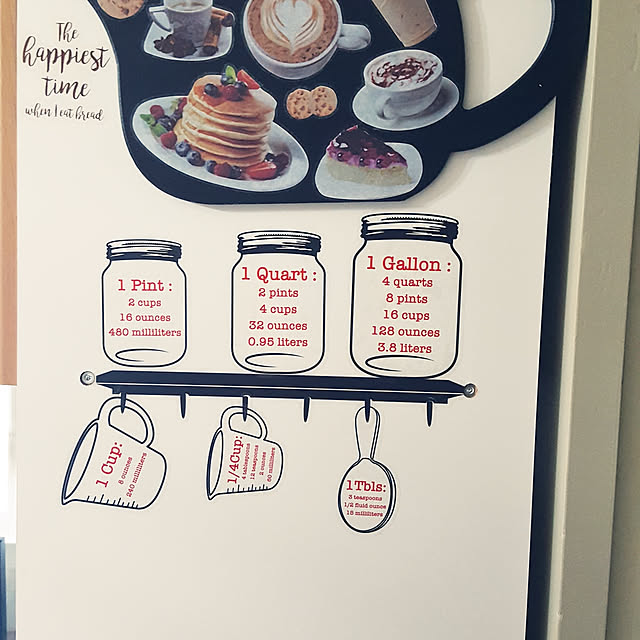 The
happiest
time
when I eat bread
1 Pint :
2 cups
16 ounces
480 milliliters
1 Quart :
2 pints
4 cups
32 ounces
0.95 liters
1 Gallon :
4 quarts
8 pints
16 cups
128 ounces
3.8 liters
1 Cup:
8 ounces
240 milliliters
1/4Cup:
4 tablespoons
12 teaspoons
2 ounces
60 milliliters
1Tbls:
3 teaspoons
1/2 fluid ounce
15 milliliters